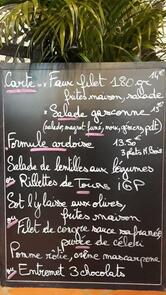 Carte : Faux filet 180 gr 14€
frites maison, salade
Salade gasconne
(salade, magret fumé, noix, gésiers, pdt)
Formule ardoise 13.50
3 plats
Salade de lentilles aux légumes
ou Rillettes de Tours IGP
aux olives,
frites maison
ou Filet de congre sauce safranée
purée de céleri
Pomme rôtie, crème mascarpone
ou Entremet 3 chocolats